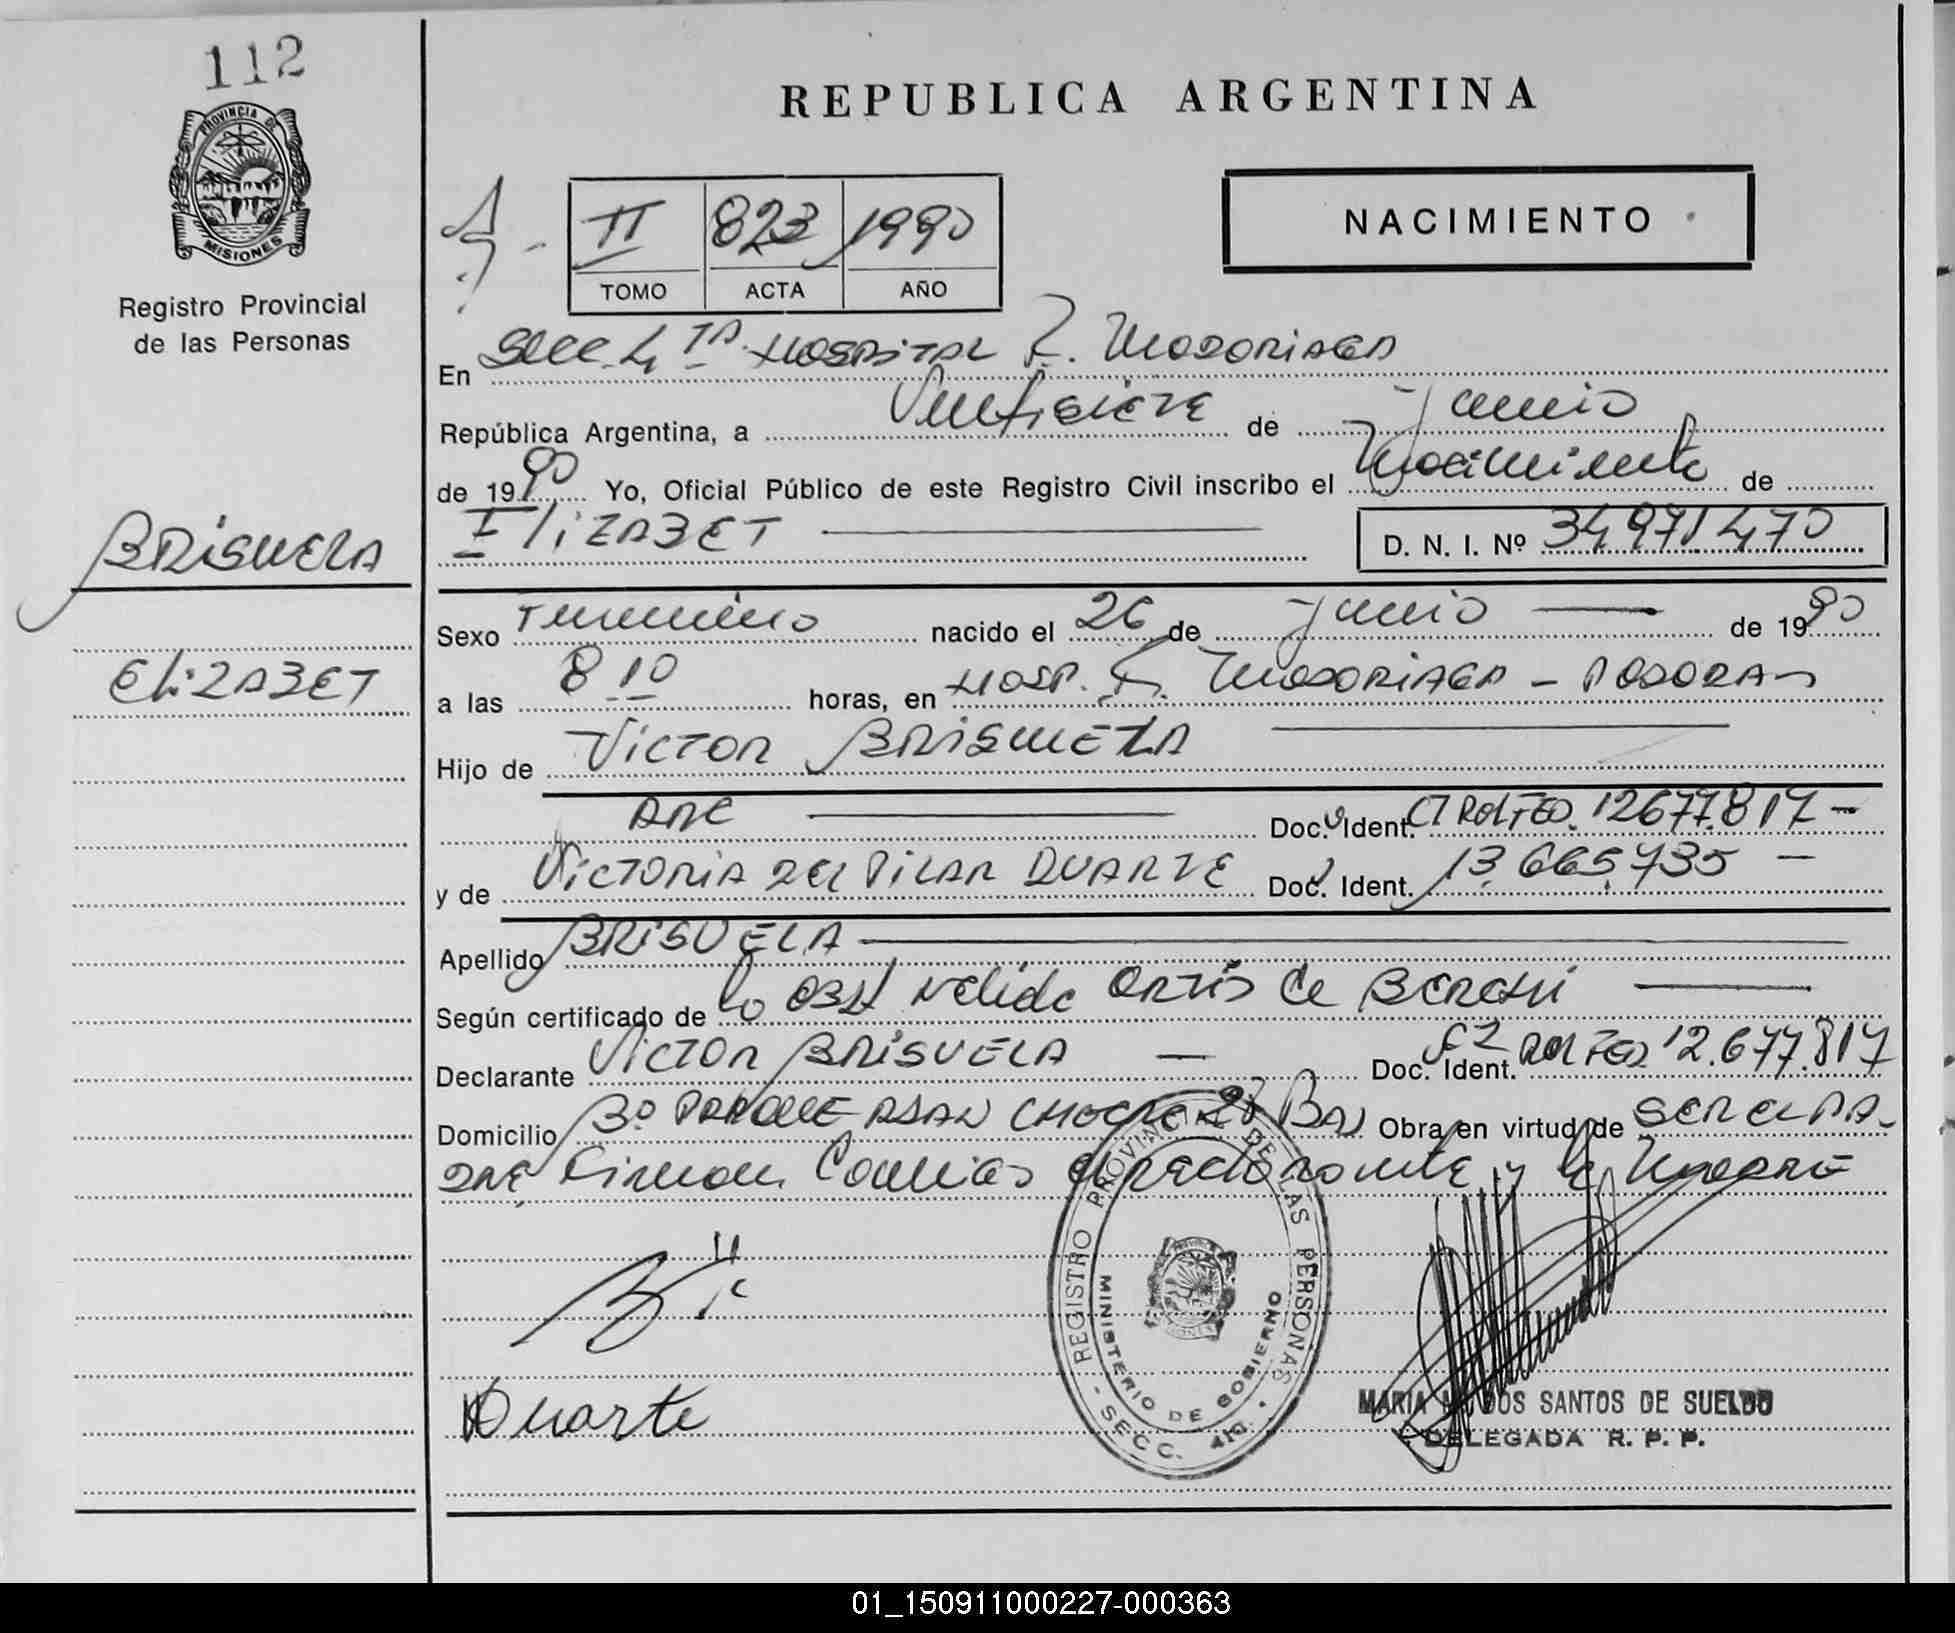 112
PROVINCIA DE
MISIONES
Registro Provincial
de las Personas
BRISUELA
ELIZABET
REPUBLICA ARGENTINA
II 823 1990
TOMO ACTA AÑO
NACIMIENTO
En Secc 4TA Hospital R. Madariaga
República Argentina, a Veintisiete de Junio
de 1990 Yo, Oficial Público de este Registro Civil inscribo el Nacimiento de
ElIZABET D. N. I. Nº 34971470
Sexo Femenino nacido el 26 de Junio de 1990
a las 8 10 horas, en Hosp. R. MADARIAGA - POSADAS
Hijo de VICTOR BRISUELA
ARG Doc. Ident. CI POL FED. 12677.817 -
y de VICTORIA DEL PILAR DUARTE Doc. Ident. 13.665.735 -
Apellido BRISUELA
Según certificado de la OBST Nelida ORTIS de
Declarante VICTOR BRISUELA - Doc. Ident. CI POL FED 12.677.817
Domicilio Bº PARQUE ADAM Obra en virtud de SER el PA-
DRE Firman Conmigo el declarante y la MADRE
REGISTRO PROVINCIAL DE LAS PERSONAS
MINISTERIO DE GOBIERNO
- SECC. 4ta. -
Duarte
MARIA DOS SANTOS DE SUELDO
DELEGADA R. P. P.
01_150911000227-000363